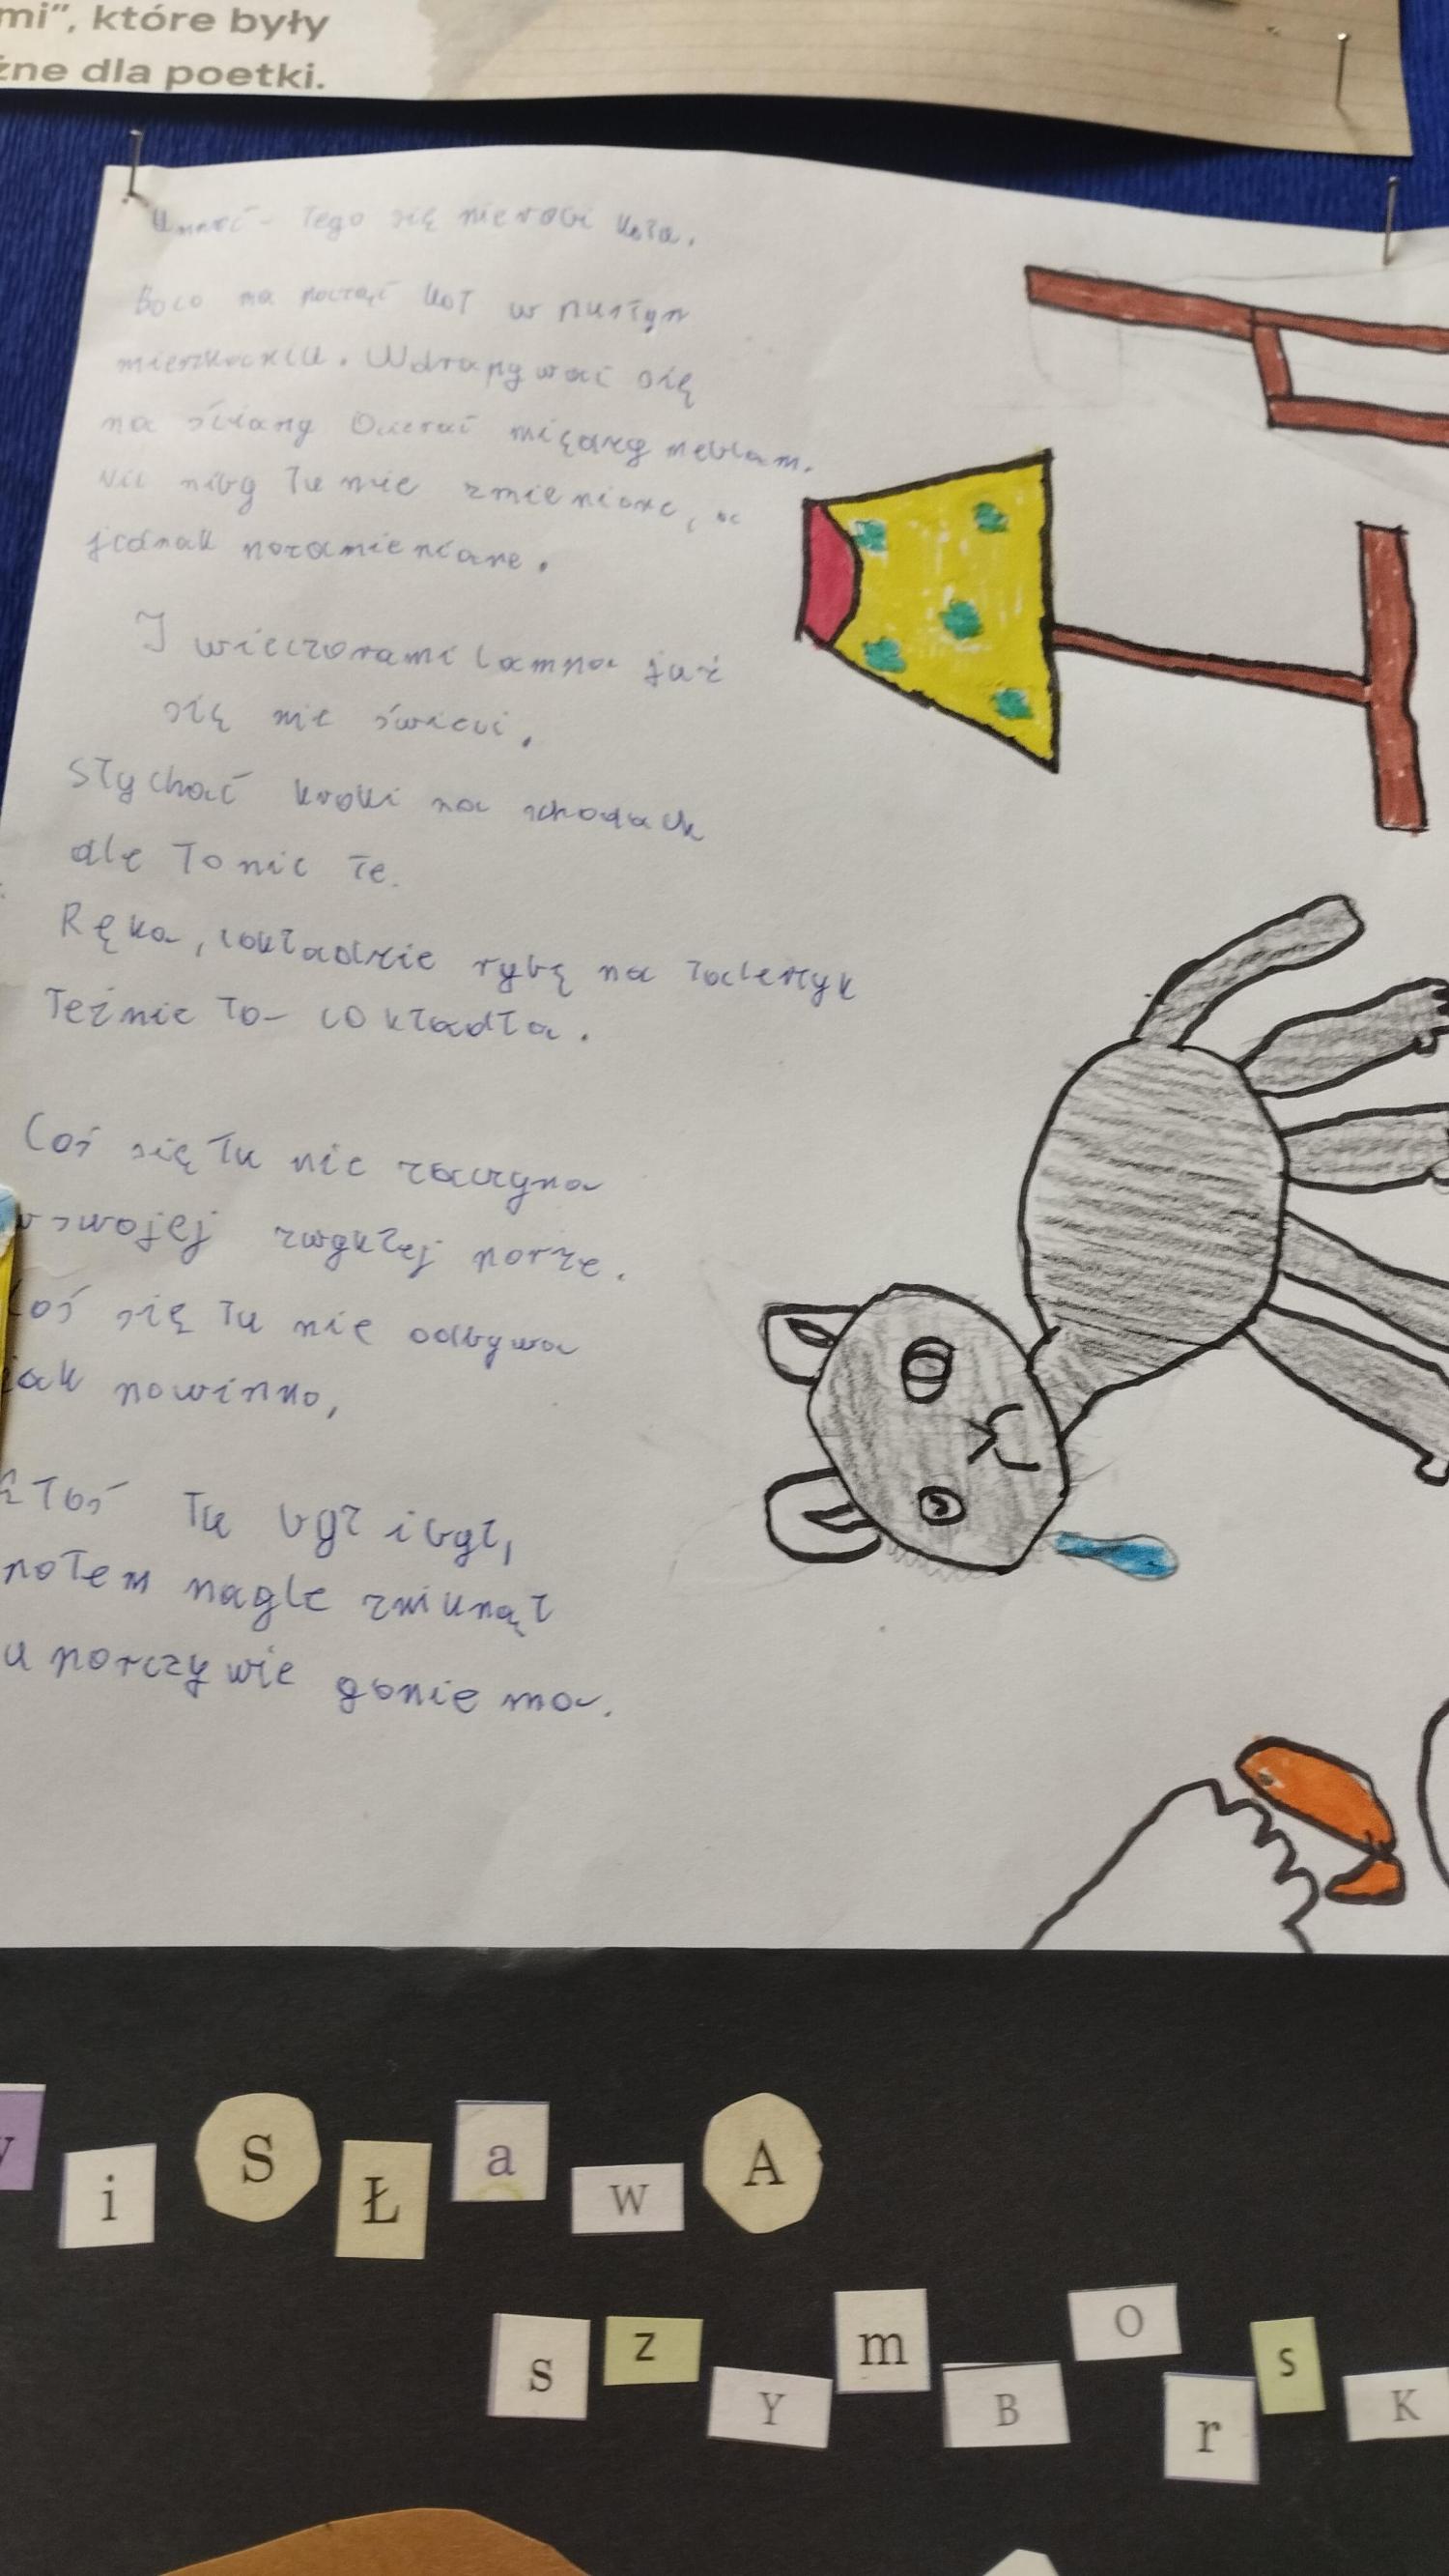 mi”, które były
żne dla poetki.
Umrzeć - Tego się nie robi kota.
Bo co ma począć kot w pustym
mieszkaniu. Wdrapywać się
na ściany Ocierać między meblam.
Nic niby Tu nie zmienione, a
jednak pozamieniane.
I wieczorami lampa już
się nie świeci.
Słychać kroki na schodach
ale To nie te.
Ręka, co kładzie rybę na Talerzyk
Też nie To - co kładła.
Coś się Tu nie zaczyna
w swojej zwykłej porze.
Coś się Tu nie odbywa
jak powinno,
kToś Tu był i był,
poTem nagle zniknął
uporczywie go nie ma.
i S Ł a w A
s z Y m B O r s K